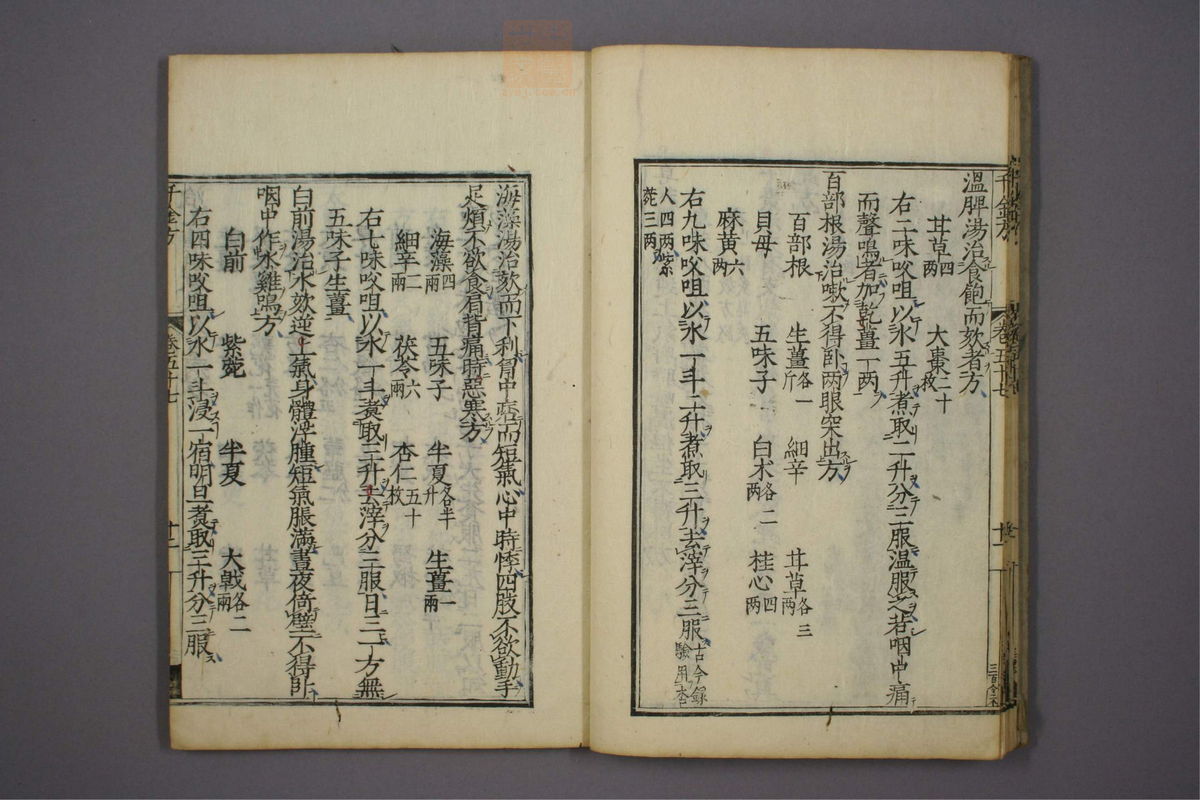 溫脾湯治食飽而欬者方
甘草四兩　大棗二十枚
右二味㕮咀以水五升煮取二升分三服溫服之若咽中痛
而聲鳴者加乾薑一兩
百部根湯治嗽不得臥兩眼突出方
百部根　生薑各一斤　細辛　甘草各三兩
貝母　五味子　白朮各二兩　桂心四兩
麻黃六兩
右九味㕮咀以水一斗二升煮取三升去滓分三服古今錄驗用杏
人四兩紫菀三兩
海藻湯治欬而下利胷中痞而短氣心中時悸四肢不欲動手
足煩不欲食肩背痛時惡寒方
海藻四兩　五味子　半夏各半升　生薑一兩
細辛二兩　茯苓六兩　杏仁五十枚
右七味㕮咀以水一斗煮取三升去滓分三服日三一方無
五味子生薑
白前湯治水欬逆上氣身體浮腫短氣脹滿晝夜倚壁不得臥
咽中作水雞鳴方
白前　紫菀　半夏　大戟各二兩
右四味㕮咀以水一斗浸一宿明旦煮取三升分三服
千金方　卷五十七　十二